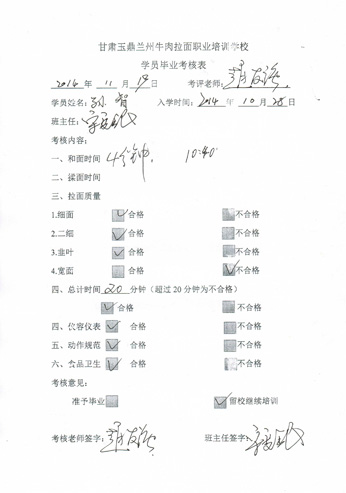 甘肃玉鼎兰州牛肉拉面职业培训学校
学员毕业考核表
2014 年 11 月 19 日 考评老师:
学员姓名: 孙 入学时间: 2014 年 10 月 28 日
班主任:
考核内容:
一、和面时间 4分钟. 10:40
二、揉面时间
三、拉面质量
1.细面 ✓ 合格 不合格
2.二细 ✓ 合格 不合格
3.韭叶 ✓ 合格 不合格
4.宽面 合格 ✓ 不合格
四、总计时间 20 分钟(超过 20 分钟为不合格)
✓ 合格 不合格
四、仪容仪表 ✓ 合格 不合格
五、动作规范 ✓ 合格 不合格
六、食品卫生 ✓ 合格 不合格
考核意见:
准予毕业 ✓ 留校继续培训
考核老师签字: 班主任签字: